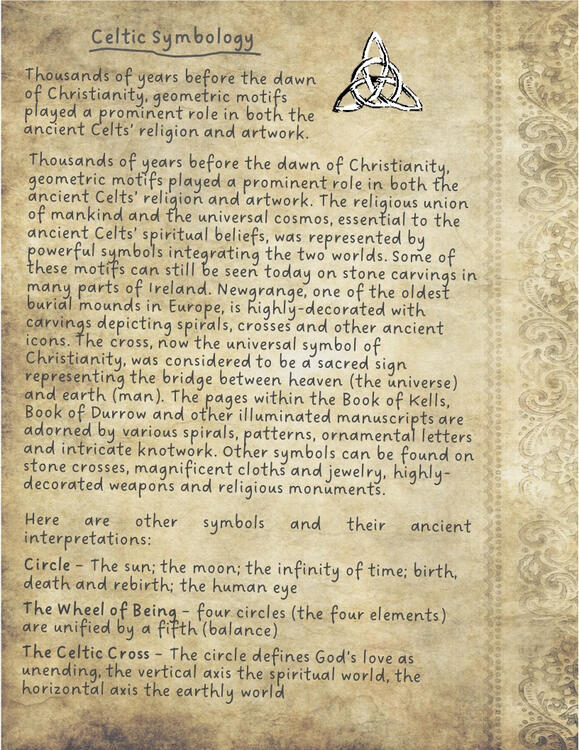 Celtic Symbology
Thousands of years before the dawn
of Christianity, geometric motifs
played a prominent role in both the
ancient Celts' religion and artwork.
Thousands of years before the dawn of Christianity,
geometric motifs played a prominent role in both the
ancient Celts' religion and artwork. The religious union
of mankind and the universal cosmos, essential to the
ancient Celts' spiritual beliefs, was represented by
powerful symbols integrating the two worlds. Some of
these motifs can still be seen today on stone carvings in
many parts of Ireland. Newgrange, one of the oldest
burial mounds in Europe, is highly-decorated with
carvings depicting spirals, crosses and other ancient
icons. The cross, now the universal symbol of
Christianity, was considered to be a sacred sign
representing the bridge between heaven (the universe)
and earth (man). The pages within the Book of Kells,
Book of Durrow and other illuminated manuscripts are
adorned by various spirals, patterns, ornamental letters
and intricate knotwork. Other symbols can be found on
stone crosses, magnificent cloths and jewelry, highly-
decorated weapons and religious monuments.
Here are other symbols and their ancient
interpretations:
Circle – The sun; the moon; the infinity of time; birth,
death and rebirth; the human eye
The Wheel of Being – four circles (the four elements)
are unified by a fifth (balance)
The Celtic Cross – The circle defines God's love as
unending, the vertical axis the spiritual world, the
horizontal axis the earthly world